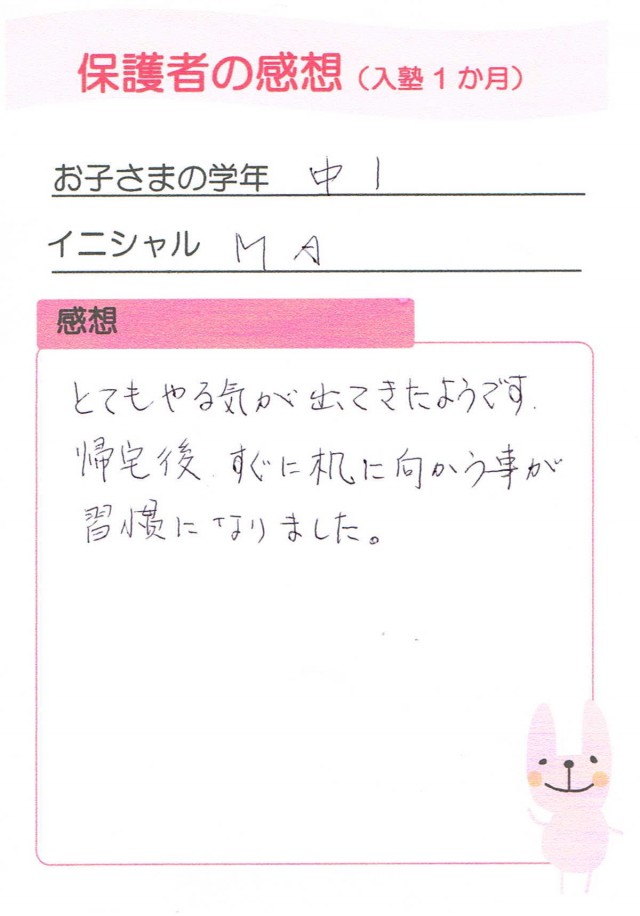 保護者の感想(入塾1か月)
お子さまの学年 中1
イニシャル M A
感想
とてもやる気が出てきたようです.
帰宅後、すぐに机に向かう事が
習慣になりました。